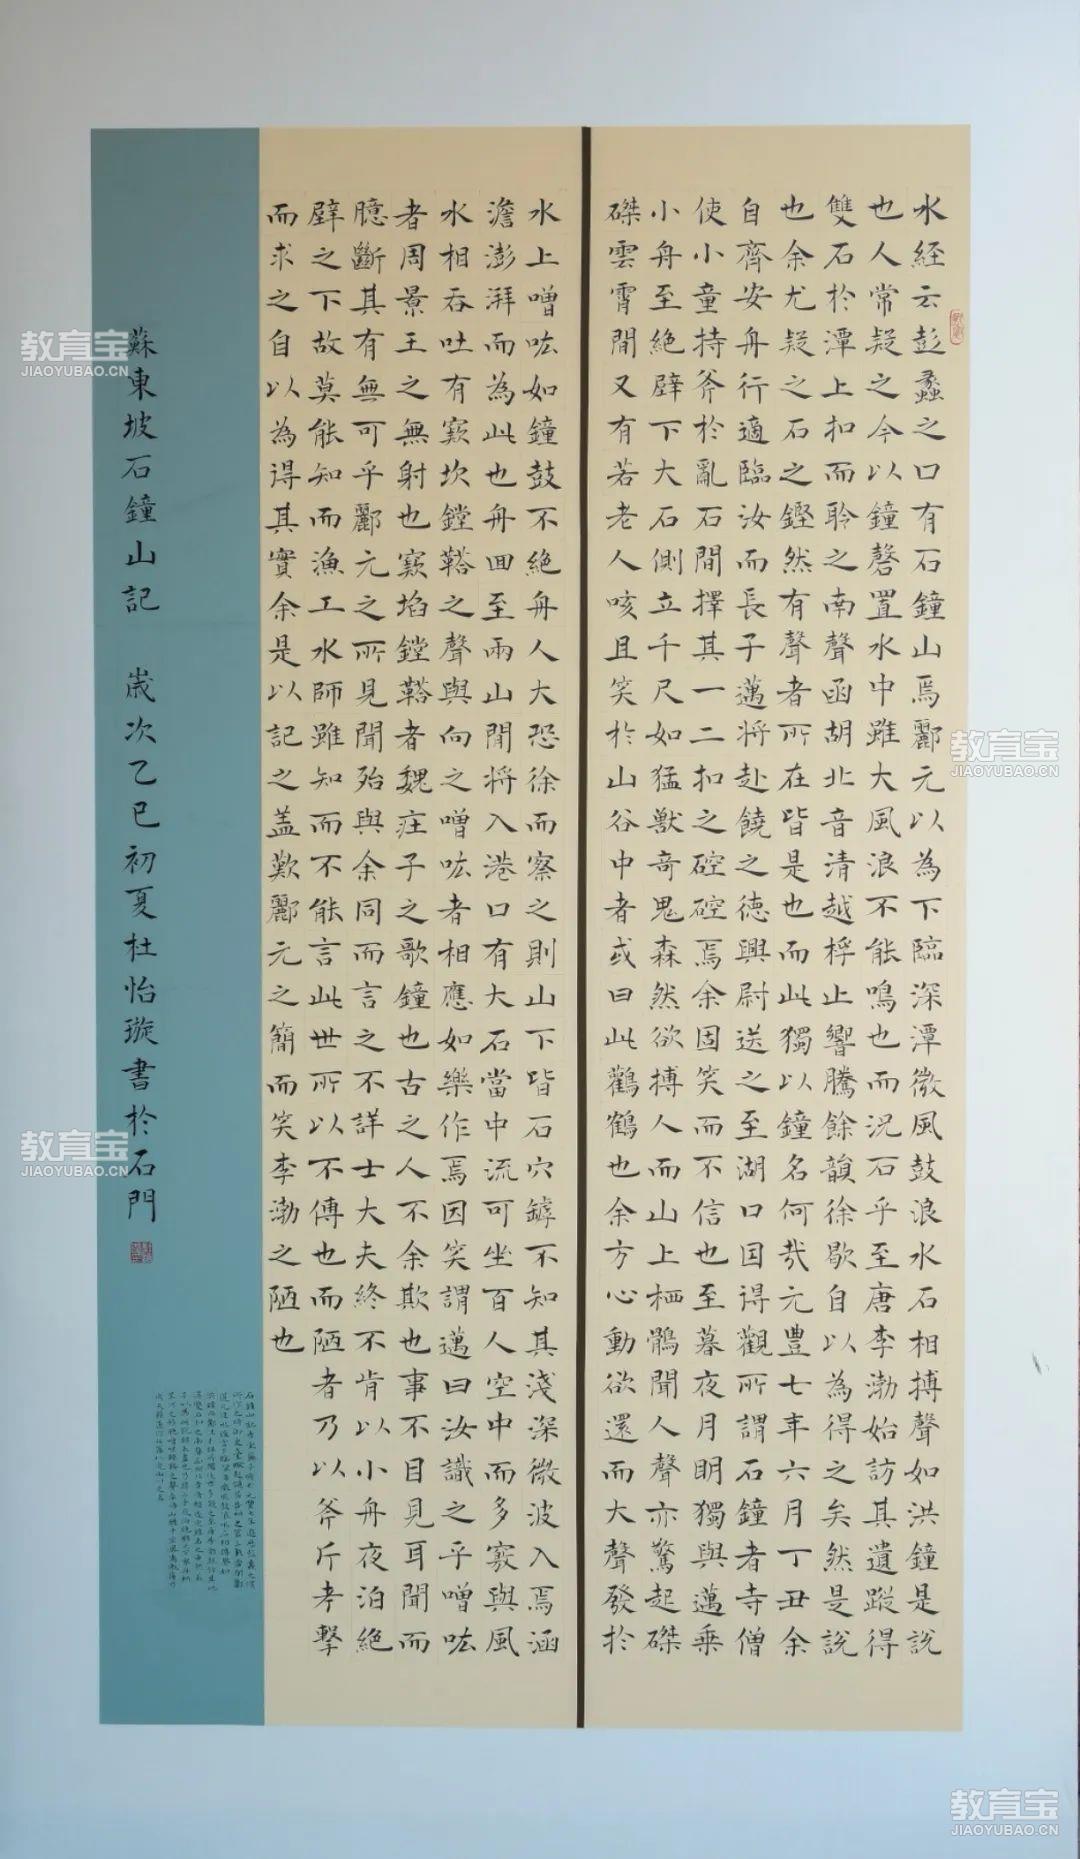 水經云彭蠡之口有石鐘山焉酈元以為下臨深潭微風鼓浪水石相搏聲如洪鐘是說
也人常疑之今以鐘磬置水中雖大風浪不能鳴也而況石乎至唐李渤始訪其遺蹤得
雙石於潭上扣而聆之南聲函胡北音清越桴止響騰餘韻徐歇自以為得之矣然是說
也余尤疑之石之鏗然有聲者所在皆是也而此獨以鐘名何哉元豐七年六月丁丑余
自齊安舟行適臨汝而長子邁將赴饒之德興尉送之至湖口因得觀所謂石鐘者寺僧
使小童持斧於亂石間擇其一二扣之硿硿焉余固笑而不信也至暮夜月明獨與邁乘
小舟至絕壁下大石側立千尺如猛獸奇鬼森然欲搏人而山上栖鶻聞人聲亦驚起磔
磔雲霄間又有若老人咳且笑於山谷中者或曰此鸛鶴也余方心動欲還而大聲發於
水上噌吰如鐘鼓不絕舟人大恐徐而察之則山下皆石穴罅不知其淺深微波入焉涵
澹澎湃而為此也舟回至兩山間將入港口有大石當中流可坐百人空中而多竅與風
水相吞吐有窾坎鏜鞳之聲與向之噌吰者相應如樂作焉因笑謂邁曰汝識之乎噌吰
者周景王之無射也窾埳鏜鞳者魏莊子之歌鐘也古之人不余欺也事不目見耳聞而
臆斷其有無可乎酈元之所見聞殆與余同而言之不詳士大夫終不肯以小舟夜泊絕
壁之下故莫能知而漁工水師雖知而不能言此世所以不傳也而陋者乃以斧斤考擊
而求之自以為得其實余是以記之蓋歎酈元之簡而笑李渤之陋也
蘇東坡石鐘山記 歲次乙巳初夏杜怡璇書於石門
教育宝
JIAOYUBAO.CN
教育宝
JIAOYUBAO.CN
教育宝
JIAOYUBAO.CN
教育宝
JIAOYUBAO.CN